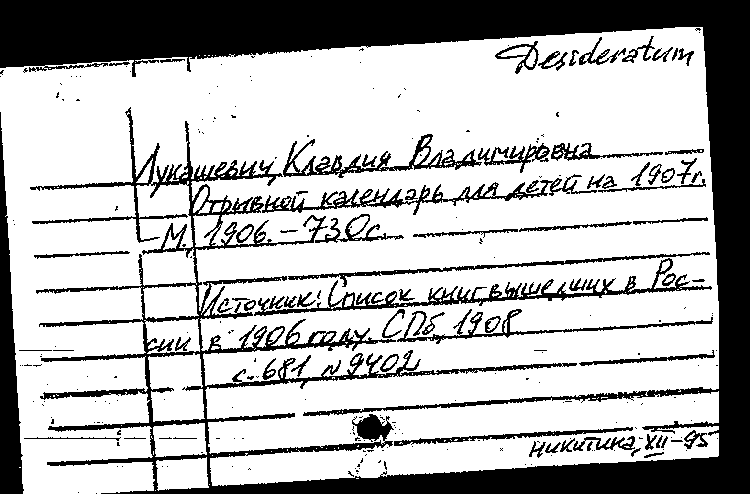 Desideratum
Лукашевич, Клавдия Владимировна
Отрывной календарь для детей на 1907г.
— М., 1906. — 730с.
Источник: Список книг, вышедших в Рос-
сии в 1906 году. СПб, 1908
с. 681, №9402
Никитина, XII-95